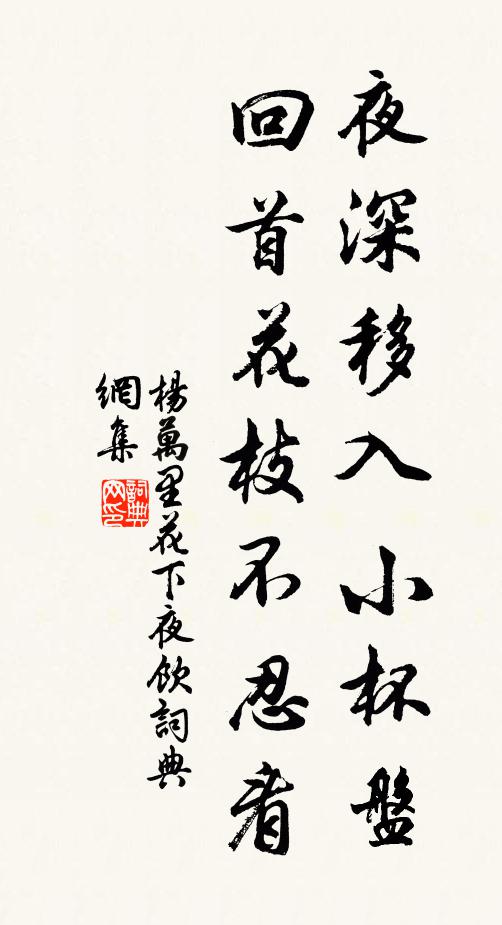 夜深移入小杯盤
回首花枝不忍看
楊萬里花下夜飲詞典
網集
詞典
网印